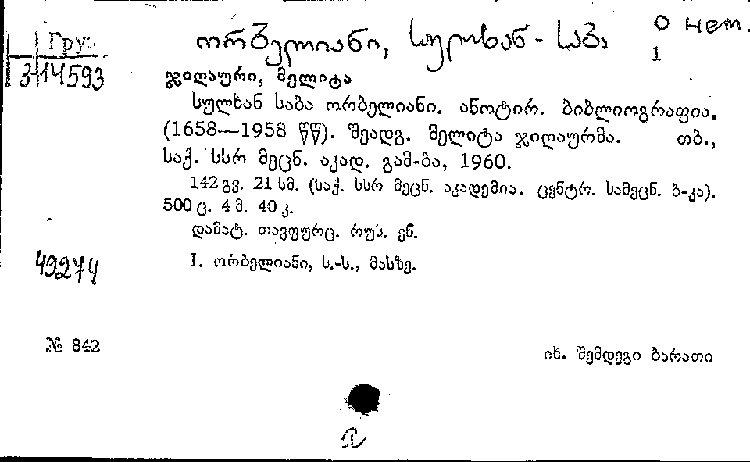 ორბელიანი, სულხან - საბა
О нем.
1
Груз
3-14593
ჯიღაური, მელიტა
სულხან საბა ორბელიანი. ანოტირ. ბიბლიოგრაფია.
(1658—1958 წწ). შეადგ. მელიტა ჯიღაურმა. თბ.,
საქ. სსრ მეცნ. აკად. გამ-ბა, 1960.
142 გვ. 21 სმ. (საქ. სსრ მეცნ. აკადემია. ცენტრ. სამეცნ. ბ-კა).
500 ც. 4 მ. 40 კ.
დამატ. თავფურც. რუს. ენ.
49274
I. ორბელიანი, ს.-ს., მასზე.
№ 842
იხ. შემდეგი ბარათი